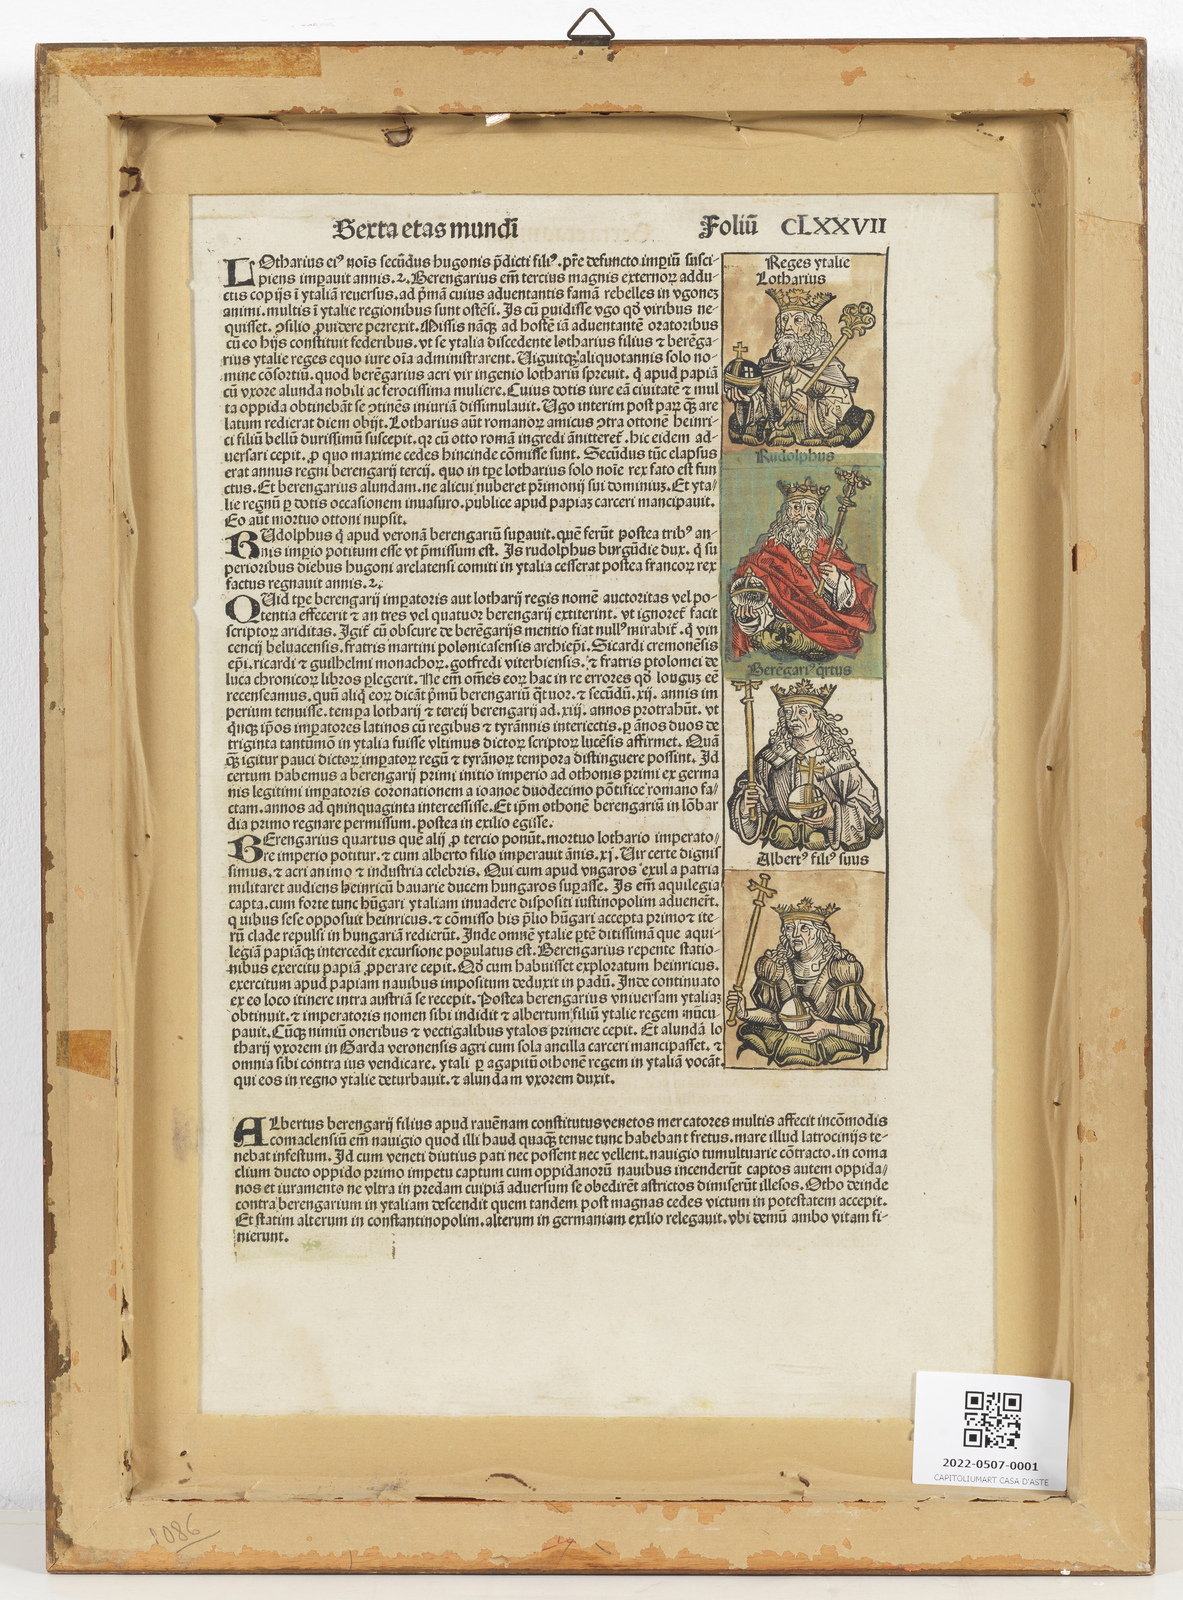 Sexta etas mundi Foliũ CLXXVII
Reges ytalie
Lotharius
LOtharius eiꝰ nois̃ secũdus hugonis p̃dicti filiꝰ. pr̃e defuncto imp̱iũ susci-
piens imp̱auit annis .2. Berengarius em̃ tercius magnis externoꝝ addu-
ctis copijs ĩ ytaliã reuersus. ad p̃mã cuius aduentantis famã rebelles in vgoneꝫ
animi. multis ĩ ytalie regionibus sunt ostẽsi. Is cũ p̱uidisse vgo qđ viribus ne-
quisset. ꝯsilio ꝓuidere perrexit. Missis nãqꝫ ad hostẽ iã aduentantẽ oratoribus
cũ eo hijs constituit federibus. vt se ytalia discedente lotharius filius ⁊ berẽga-
rius ytalie reges equo iure oĩa administrarent. Uiguitqꝫ aliquotannis solo no-
mine cõsortiũ. quod berẽgarius acri vir ingenio lothariũ spreuit. q̃ apud papiã
cũ vxore alunda nobili ac ferocissima muliere. Cuius dotis iure eã ciuitatẽ ⁊ mul
ta oppida obtinebãt se ꝯtinẽs iniuriã dissimulauit. Ugo interim post parꝫ q̃ꝫ are
latum redierat diem obijt. Lotharius aũt romanoꝝ amicus ꝯtra ottonẽ heinri-
ci filiũ bellũ durissimũ suscepit. qꝛ cũ otto romã ingredi ãnitteret̃. hic eidem ad-
uersari cepit. ꝓ quo maxime cedes hincinde cõmisse sunt. Secũdus tũc elapsus
erat annus regni berengarij tercij. quo in tp̃e lotharius solo noĩe rex fato est fun
ctus. Et berengarius alundam. ne alicui nuberet pr̃imonij sui dominiuꝫ. Et yta-
lie regnũ ꝑ dotis occasionem inuasuro. publice apud papiaꝫ carceri mancipauit.
Eo aũt mortuo ottoni nupsit.
Rudolphus
RUdolphus q̃ apud veronã berengariũ sup̱auit. quẽ ferũt postea tribꝰ an-
nis imp̱io potitum esse vt p̃missum est. Is rudolphus burgũdie dux. q̃ su
perioribus diebus hugoni arelatensi comiti in ytalia cesserat postea francoꝝ rex
factus regnauit annis .2.
QUid tp̃e berengarij imp̱atoris aut lotharij regis nomẽ auctoritas vel po-
tentia effecerit ⁊ an tres vel quatuor berengarij extiterint. vt ignoret̃ facit
scriptoꝝ ariditas. Igit̃ cũ obscure de berẽgarijs mentio fiat nullꝰ mirabit̃. q̃ vin
cencij beluacensis. fratris martini polonicasensis archiep̃i. Sicardi cremonẽsis
ep̃i. ricardi ⁊ guilhelmi monachoꝝ. gotfredi viterbiensis. ⁊ fratris ptolomei de
luca chronicoꝝ libros ꝑlegerit. Ne em̃ om̃es eoꝝ hac in re errores qđ longuꝫ eẽ
recenseamus. quũ aliq̃ eoꝝ dicãt p̃mũ berengariũ q̃tuor. ⁊ secũdũ .xij. annis im
perium tenuisse. temp̱a lotharij ⁊ tercij berengarij ad .xiij. annos protrahũt. vt
q̃nqꝫ ip̃os imp̱atores latinos cũ regibus ⁊ tyrãnis interiectis. ꝑ ãnos duos de
triginta tantũmõ in ytalia fuisse vltimus dictoꝝ scriptoꝝ lucẽsis affirmet. Quã
q̃ꝫ igitur pauci dictoꝝ imp̱atoꝝ regũ ⁊ tyrãnoꝝ tempora distinguere possint. Id
certum habemus a berengarij primi initio imperio ad othonis primi ex germa
nis legitimi imp̱atoris coronationem a ioanne duodecimo põtifice romano fa-
ctam. annos ad quinquaginta intercessisse. Et ip̃m othonẽ berengariũ in lõbar
dia primo regnare permissum. postea in exilio egisse.
Berẽgariꝰ q̃rtus
BErengarius quartus que alij ꝓ tercio ponũt. mortuo lothario imperato-
re imperio potitur. ⁊ cum alberto filio imperauit ãnis .xj. Uir certe dignis
simus. ⁊ acri animo ⁊ industria celebris. Qui cum apud vngaros exul a patria
militaret audiens heinricũ bauarie ducem hungaros sup̱asse. Is em̃ aquilegia
capta. cum forte tunc hũgari ytaliam inuadere dispositi iustinopolim aduenert̃.
quibus sese opposuit heinricus. ⁊ cõmisso bis p̃lio hũgari accepta primo ⁊ ite-
rũ clade repulsi in hungariã redierũt. Inde omnẽ ytalie p̱tẽ ditissimã que aqui-
legiã papiãqꝫ intercedit excursione populatus est. Berengarius repente statio-
nibus exercitu papiã ꝓperare cepit. Qđ cum habuisset exploratum heinricus.
exercitum apud papiam nauibus impositum deduxit in padũ. Inde continuato
ex eo loco itinere intra austriã se recepit. Postea berengarius vniuersam ytaliaꝫ
obtinuit. ⁊ imperatoris nomen sibi indidit ⁊ albertum filiũ ytalie regem nũcu
pauit. Cũqꝫ nimiũ oneribus ⁊ vectigalibus ytalos primere cepit. Et alundã lo
tharij vxorem in Garda veronensis agri cum sola ancilla carceri mancipasset. ⁊
omnia sibi contra ius vendicare. ytali ꝑ agapitũ othonẽ regem in ytaliã vocãt.
qui eos in regno ytalie deturbauit. ⁊ alundam vxorem duxit.
Albertꝰ filiꝰ suus
ALbertus berengarij filius apud rauẽnam constitutus venetos mercatores multis affecit incõmodis
comaclensiũ em̃ nauigio quod illi haud quaq̃ꝫ tenue tunc habebant fretus. mare illud latrocinijs te-
nebat infestum. Id cum veneti diutius pati nec possent nec vellent. nauigio tumultuarie cõtracto. in coma
clium ducto oppido primo impetu captum cum oppidanorũ nauibus incenderũt captos autem oppida-
nos et iuramento ne vltra in predam cuipiã aduersum se obedirẽt astrictos dimiserũt illesos. Otho deinde
contra berengarium in ytaliam descendit quem tandem post magnas cedes victum in potestatem accepit.
Et statim alterum in constantinopolim. alterum in germaniam exilio relegauit. vbi demũ ambo vitam fi-
nierunt.
2022-0507-0001
CAPITOLIUMART CASA D'ASTE
1086